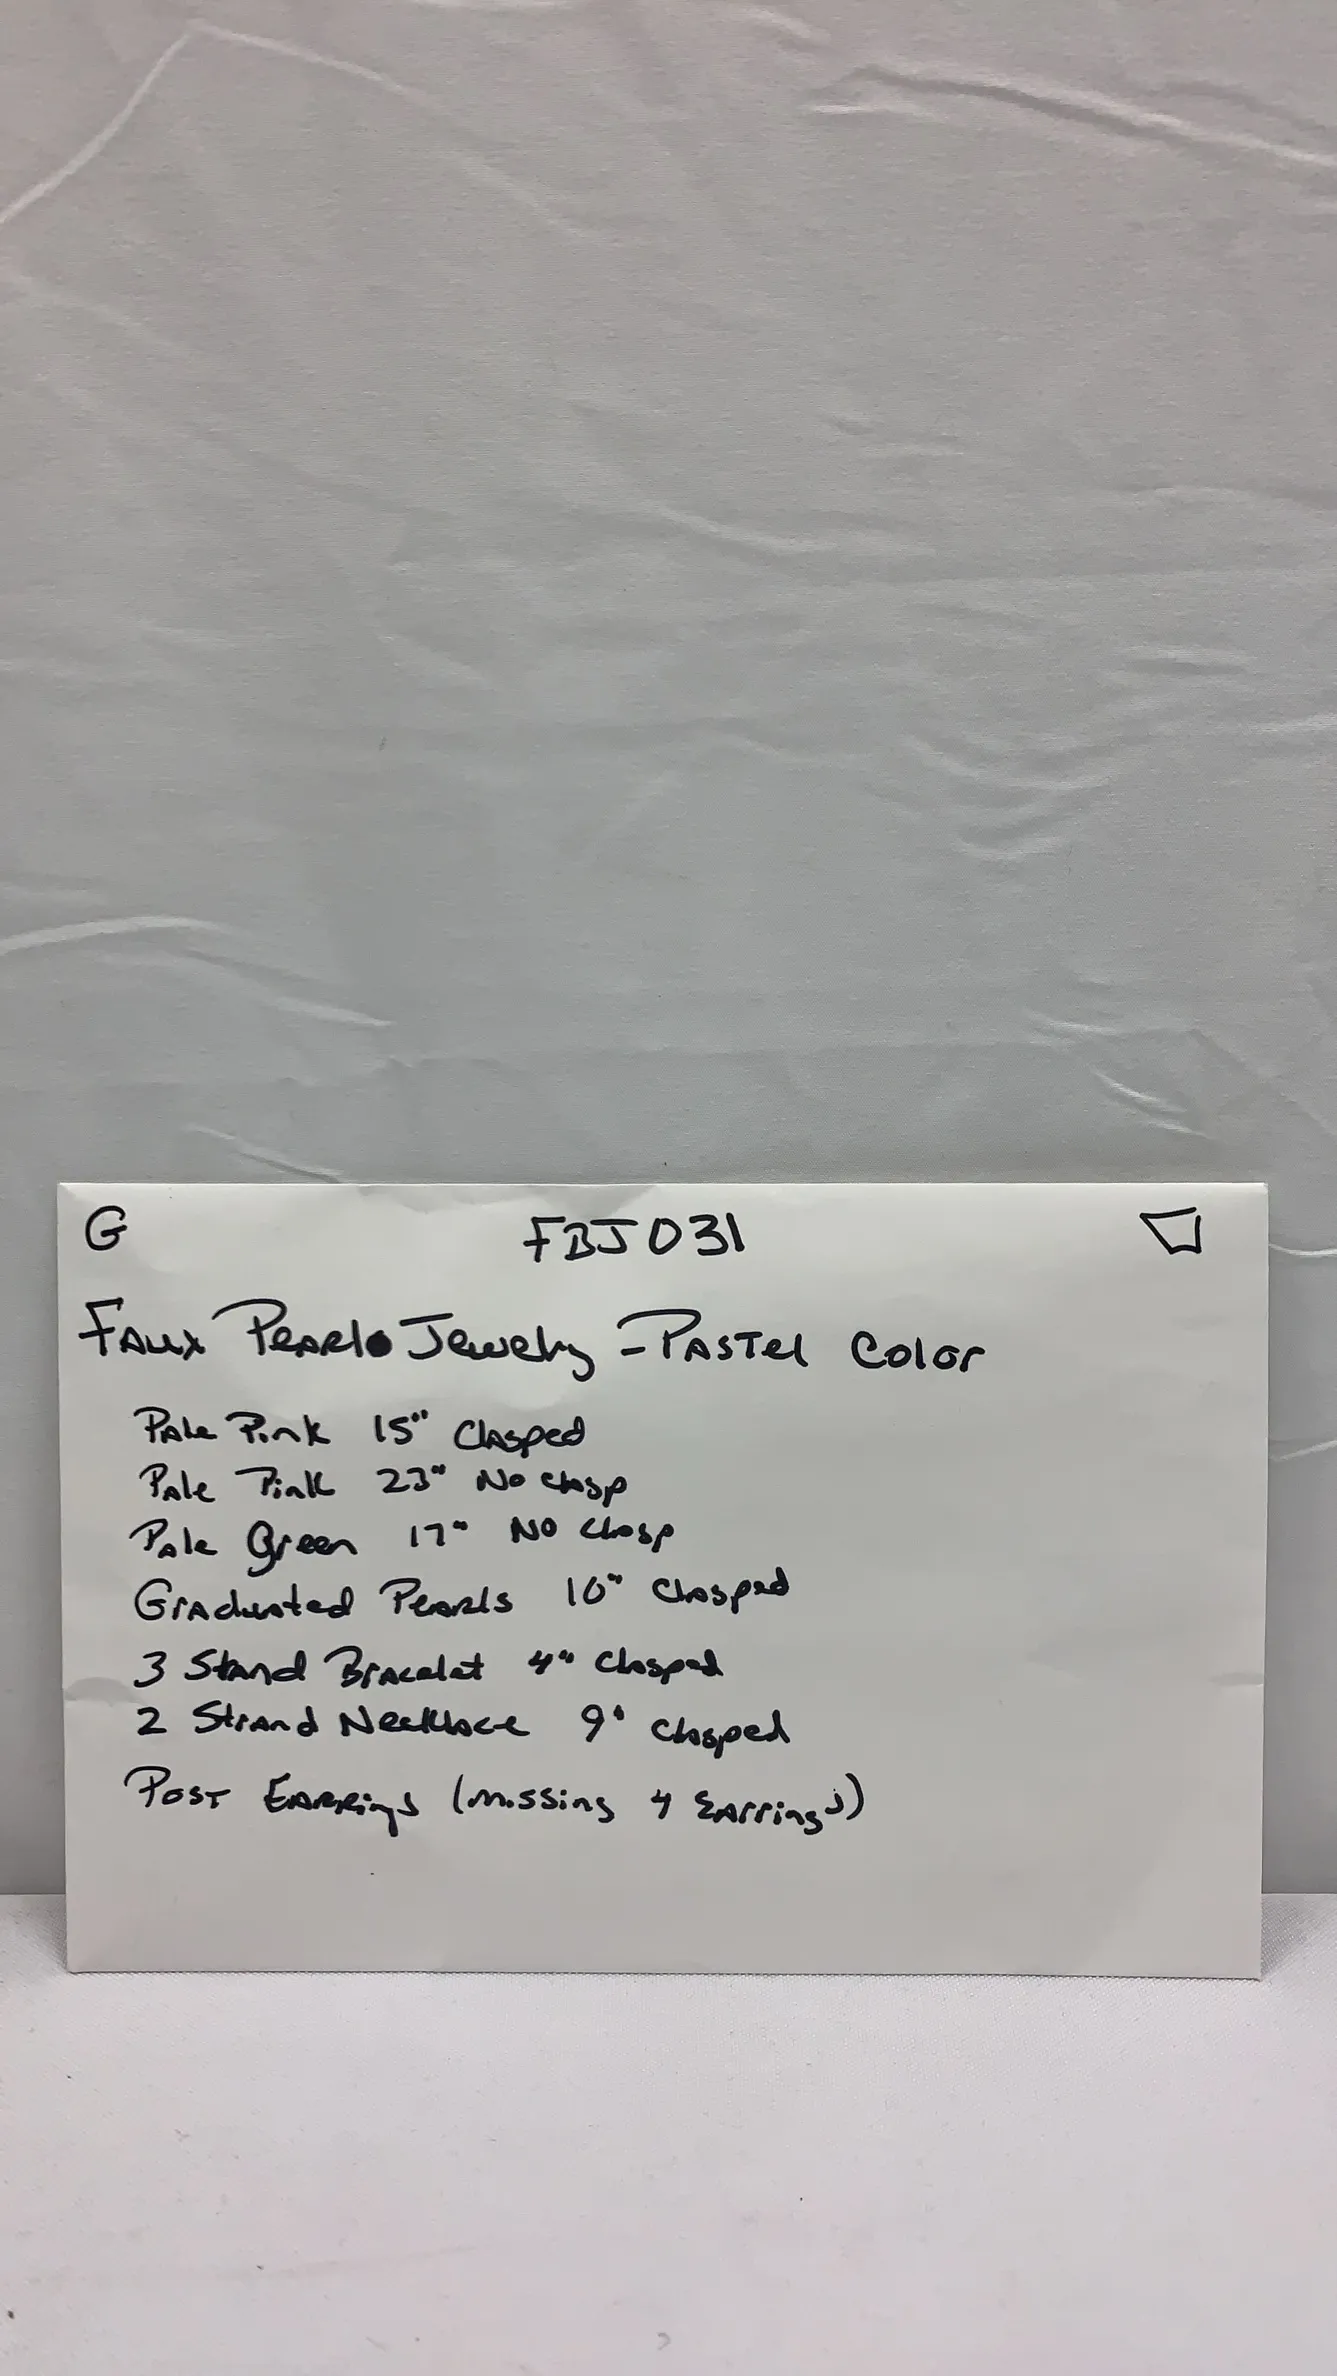 G FBJ031
Faux Pearl Jewelry - Pastel Color
Pale Pink 15" Clasped
Pale Pink 23" No Clasp
Pale Green 17" No Clasp
Graduated Pearls 10" Clasped
3 Stand Bracelet 4" Clasped
2 Strand Necklace 9" Clasped
Post Earrings (missing 4 Earrings)